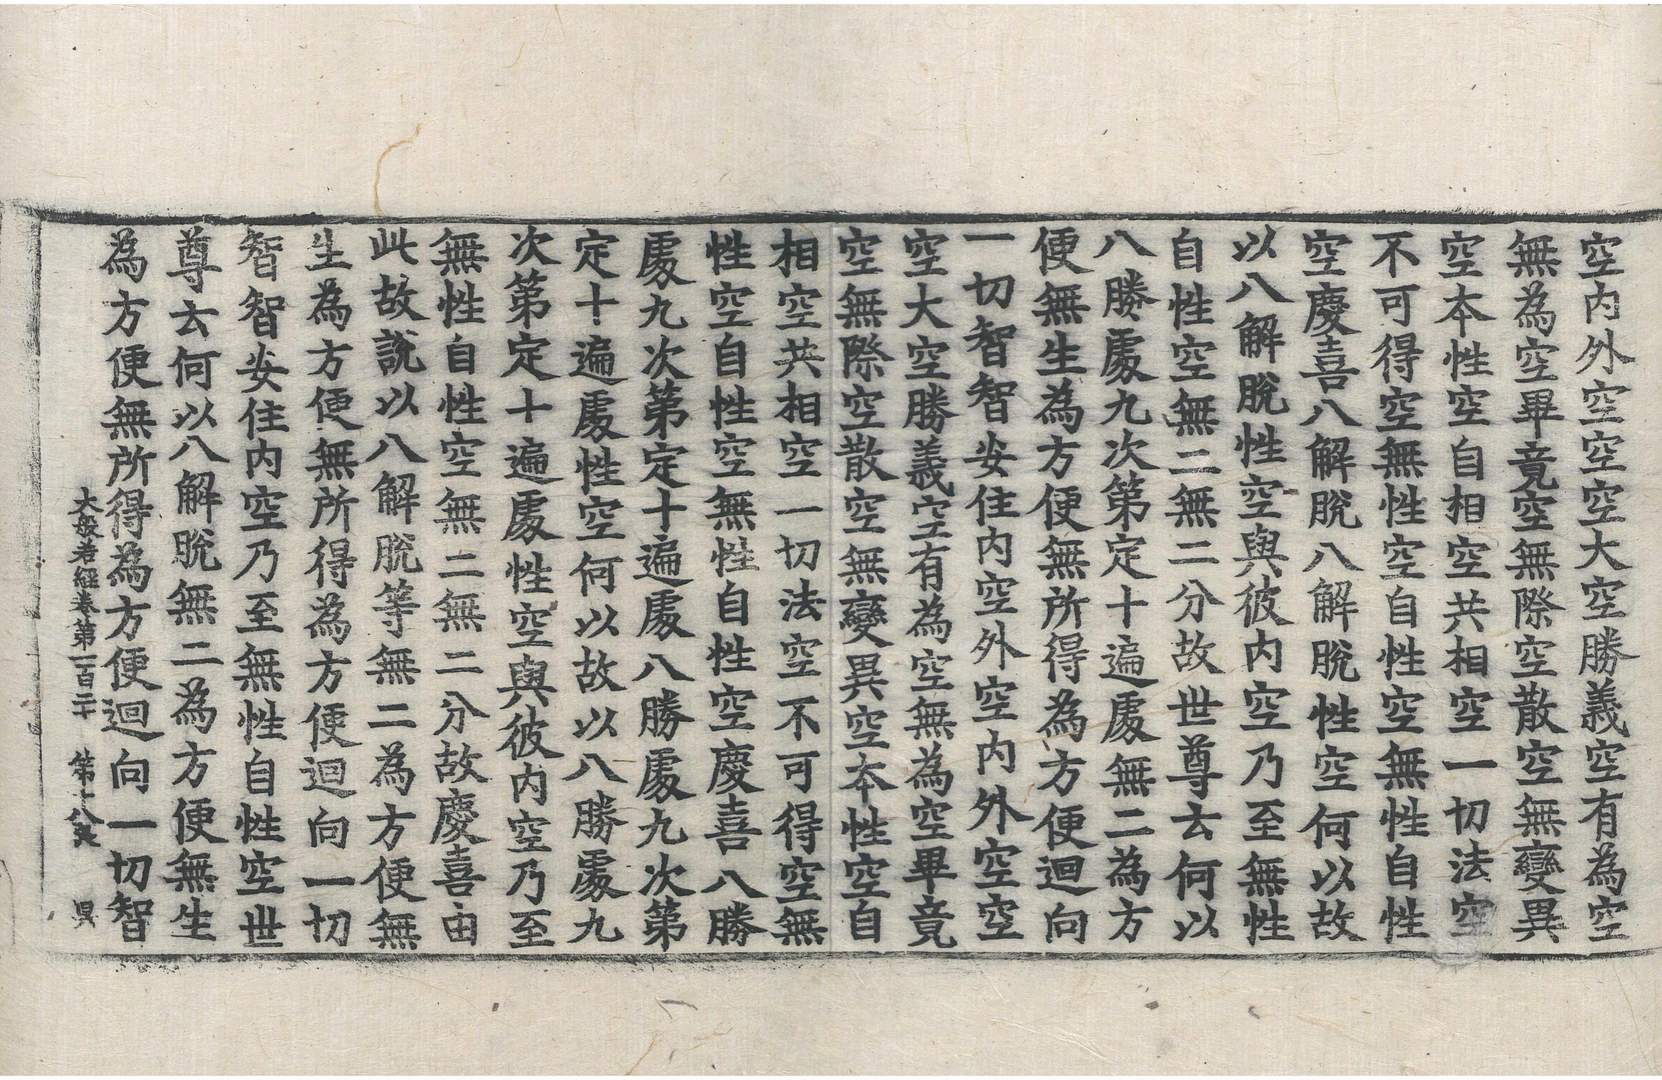 空内外空空空大空勝義空有為空
無為空畢竟空無際空散空無變異
空本性空自相空共相空一切法空
不可得空無性空自性空無性自性
空慶喜八解脫八解脫性空何以故
以八解脫性空與彼内空乃至無性
自性空無二無二分故世尊云何以
八勝處九次第定十遍處無二為方
便無生為方便無所得為方便迴向
一切智智安住内空外空内外空空
空大空勝義空有為空無為空畢竟
空無際空散空無變異空本性空自
相空共相空一切法空不可得空無
性空自性空無性自性空慶喜八勝
處九次第定十遍處八勝處九次第
定十遍處性空何以故以八勝處九
次第定十遍處性空與彼内空乃至
無性自性空無二無二分故慶喜由
此故說以八解脫等無二為方便無
生為方便無所得為方便迴向一切
智智安住内空乃至無性自性空世
尊云何以八解脫無二為方便無生
為方便無所得為方便迴向一切智
大般若經卷第一百二十 第十八丈 昃